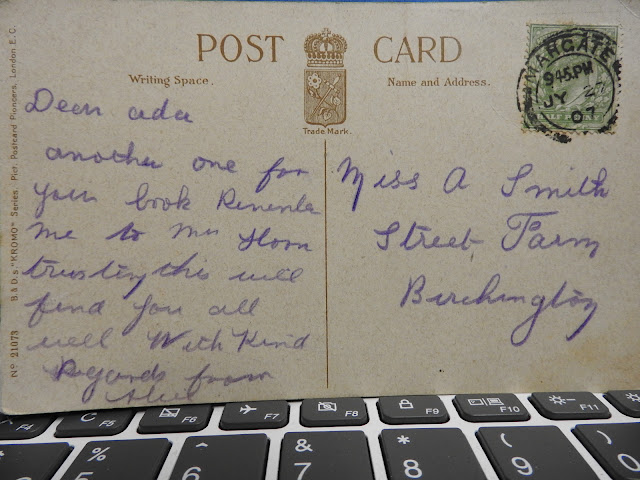 POST CARD
Writing Space.
Name and Address.
Trade Mark.
MARGATE
945.PM
JY 27
07
Dear ada
another one for
your book Remember
me to Mrs
trusting this will
find you all
well With Kind
Regards from
Miss A Smith
Street Farm
Birchington
Nº 21073 B.& D.s "KROMO" Series. Pict. Postcard Pioneers, London E.C.
F4
F5
F6
F7
F8
F9
F10
F11
%
5
^
6
&
7
*
8
(
9
)
0